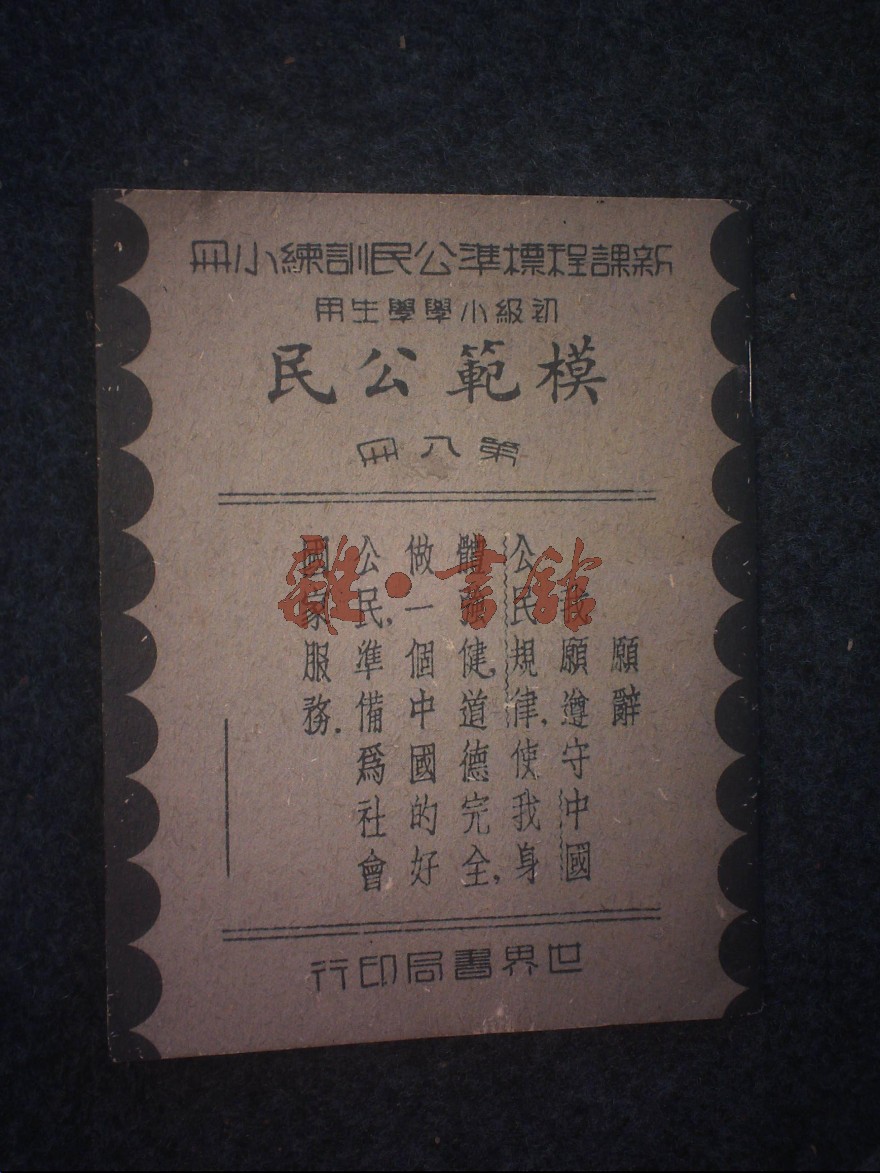 新課程標準公民訓練小冊
初級小學學生用
模範公民
第八冊
願辭
我願遵守中國
公民規律,使我身
體强健,道德完全,
做一個中國的好
公民,準備為社會
國家服務.
世界書局印行
雜·書館